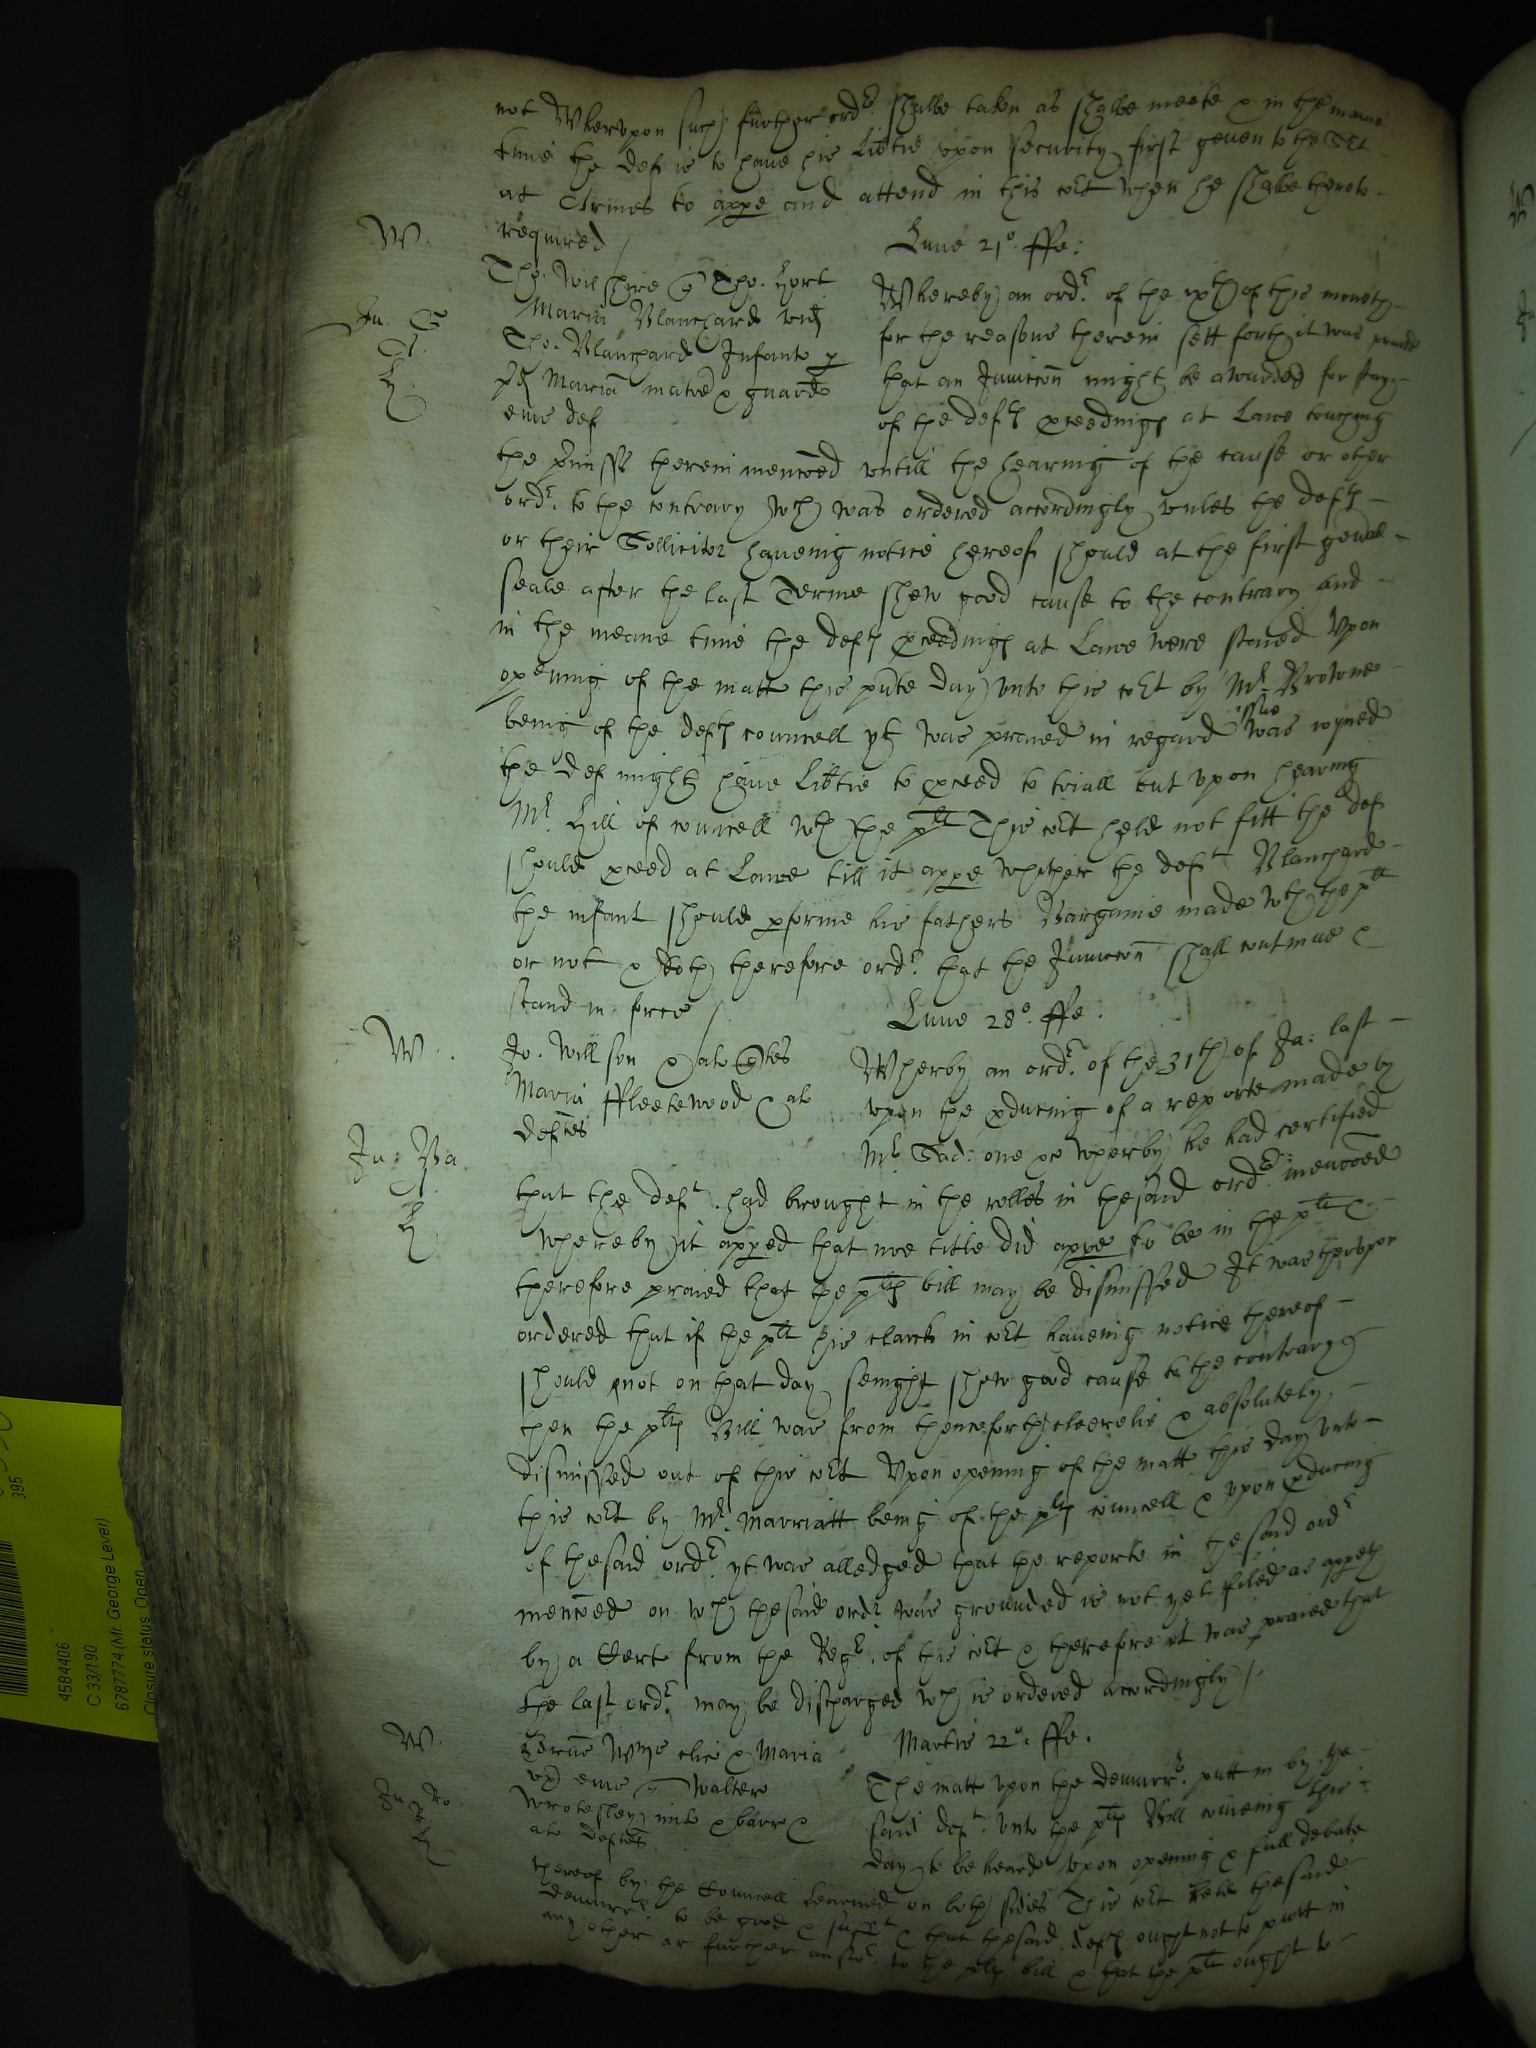 not Wherupon such further ordr shalbe taken as shalbe meete & in the meane
time the def is to have his libtie upon security first geven to the Sct
at Armes to appe and attend in this cort when he shalbe therto
required /
W.
Lune 21o. ffe:
Tho. Wilshire q Tho. Hort
Maria Blanchard vid
Tho. Blanchard Infante p
pd Maria matre & guard
eius def
Ju. G
H
Whereby an ordr. of the ixth of this moneth
for the reasons therein sett forth it was praied
that an Iniuccon might be awarded for stay
of the defts pceedings at Lawe touching
the pmisses therein menconed untill the hearing of the cause or other
ordr. to the contrary wch was ordered accordingly unles the defts
or their Sollicitor haveing notice hereof should at the first genall
seale after the last Terme shew good cause to the contrary and
in the meane time the defts pceedings at Lawe were staied Upon
opening of the matt this pnte day unto this cort by Mr. Browne
being of the defts councell yt was praied in regard issue was ioyned
the def might have libtie to pceed to triall but upon hearing
Mr. Hill of councell wth the plt This cort held not fitt the def
should pceed at Lawe till it appe whether the deft Blanchard
the infant should pforme his fathers Bargaine made wth the plt
or not & doth therefore ordr. that the Iniuccon shall continue &
stand in force /
W.
Lune 28o. ffe.
Jo. Willson & al q tes
Maria ffleetewood & al
deftes
Ju: Ba.
H
Wherby an ordr. of the 31th of Ja: last
upon the pducing of a reporte made by
Mr. Sad: one &c wherby he had certified
that the deft. had brought in the rolles in thesaid ordr: menconed
whereby it apped that noe title did appe to be in the plt &
therefore praied that the plts bill may be dismissed It was therupon
ordered that if the plt his clarck in cort haveing notice thereof
should not on that day senight shew good cause to the contrary
then the plts Bill was from thenceforth cleerelie & absolutely
dismissed out of this cort Upon opening of the matt this day unto
this cort by Mr. Marriatt being of the plts councell & upon pducing
of thesaid ordr. yt was alledged that the reporte in the said ordr
menconed on wch thesaid ordr was grounded is not yet filed as appeth
by a Certe from the Regr. of this cort & therefore it was praied that
the last ordr. may be discharged wch is ordered accordingly /
W.
Martis 22o. ffe.
Wms cler & Maria
ux eius q Waltero
Wrotesley milit & barr &
al deftes
Ju. Ro.
H
The matt upon the demurr. putt in by the
said deft. unto the plts Bill comeing this
day to be heard upon opening & full debate
thereof by the Councell learned on both sides This cort held thesaid
demurr. to be good & sufft & that thesaid defts ought not to putt in
any other or further answr. to the plts bill & that the plt ought to
4584406
C 33/190
6787774 (Mr. George Lever)
Closure status Open
395